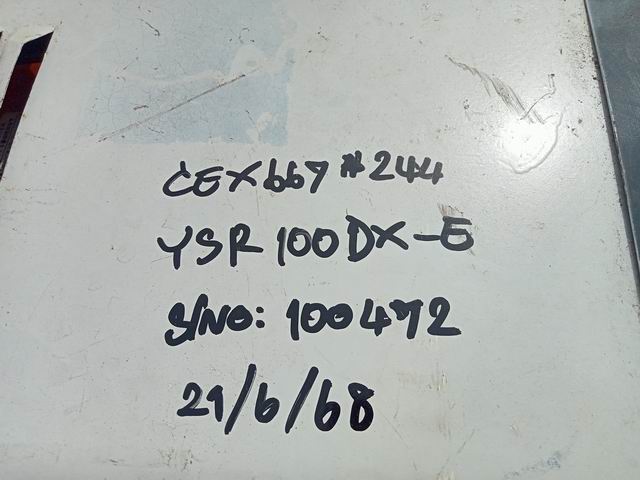 CEX667 #244
YSR 100DX-E
S/NO: 100472
21/6/68